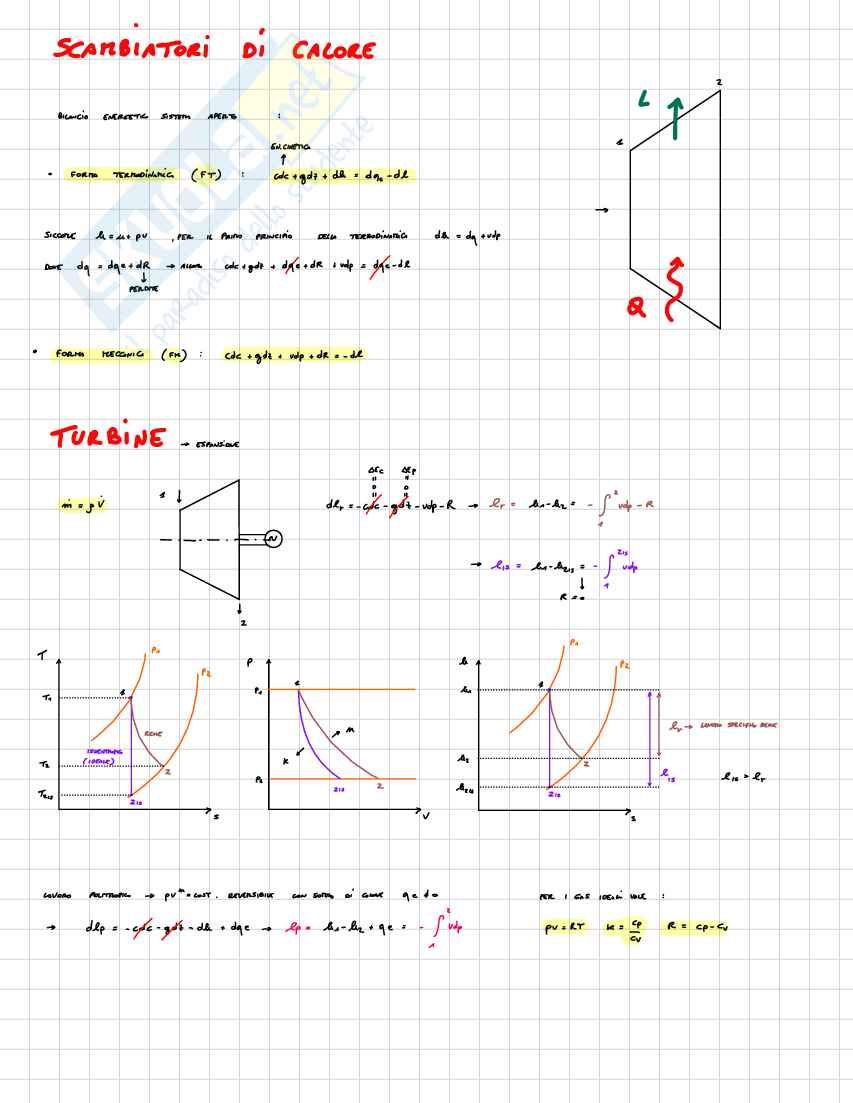 SCAMBIATORI DI CALORE
BILANCIO ENERGETICO SISTEMI APERTI :
EN. CINETICA
• FORMA TERMODINAMICA (FT) : cdc + gdz + dh = dqe - dl
SICCOME h = u + pv , PER IL PRIMO PRINCIPIO DELLA TERMODINAMICA dh = dq + vdp
DOVE dq = dqe + dR → ALLORA cdc + gdz + dqe + dR + vdp = dqe - dl
PERDITE
• FORMA MECCANICA (FM) : cdc + gdz + vdp + dR = -dl
1
2
L
Q
skuola.net
il paradiso dello studente
TURBINE → ESPANSIONE
ṁ = ρV̇
1
2
ΔEc ΔEp
= =
0 0
= =
dlr = -cdc - gdz - vdp - R → lr = h1 - h2 = - ∫₁² vdp - R
→ lis = h1 - h2is = - ∫₁²ⁱˢ vdp
R = 0
T
P1
P2
1
T1
REALE
ISOENTROPICA
(IDEALE)
T2
2
T2is
2is
S
P
P1
1
n
k
P2
2is
2
V
h
P1
P2
1
h1
lr → LAVORO SPECIFICO REALE
h2
2
lis
h2is
2is
S
lis > lr
LAVORO POLITROPICO → pvⁿ = COST. REVERSIBILE CON SCAMBIO DI CALORE qe ≠ 0
→ dlp = -cdc - gdz - dh + dqe → lp = h1 - h2 + qe = - ∫₁² vdp
PER I GAS IDEALI VALE :
pv = RT k = cp/cv R = cp - cv